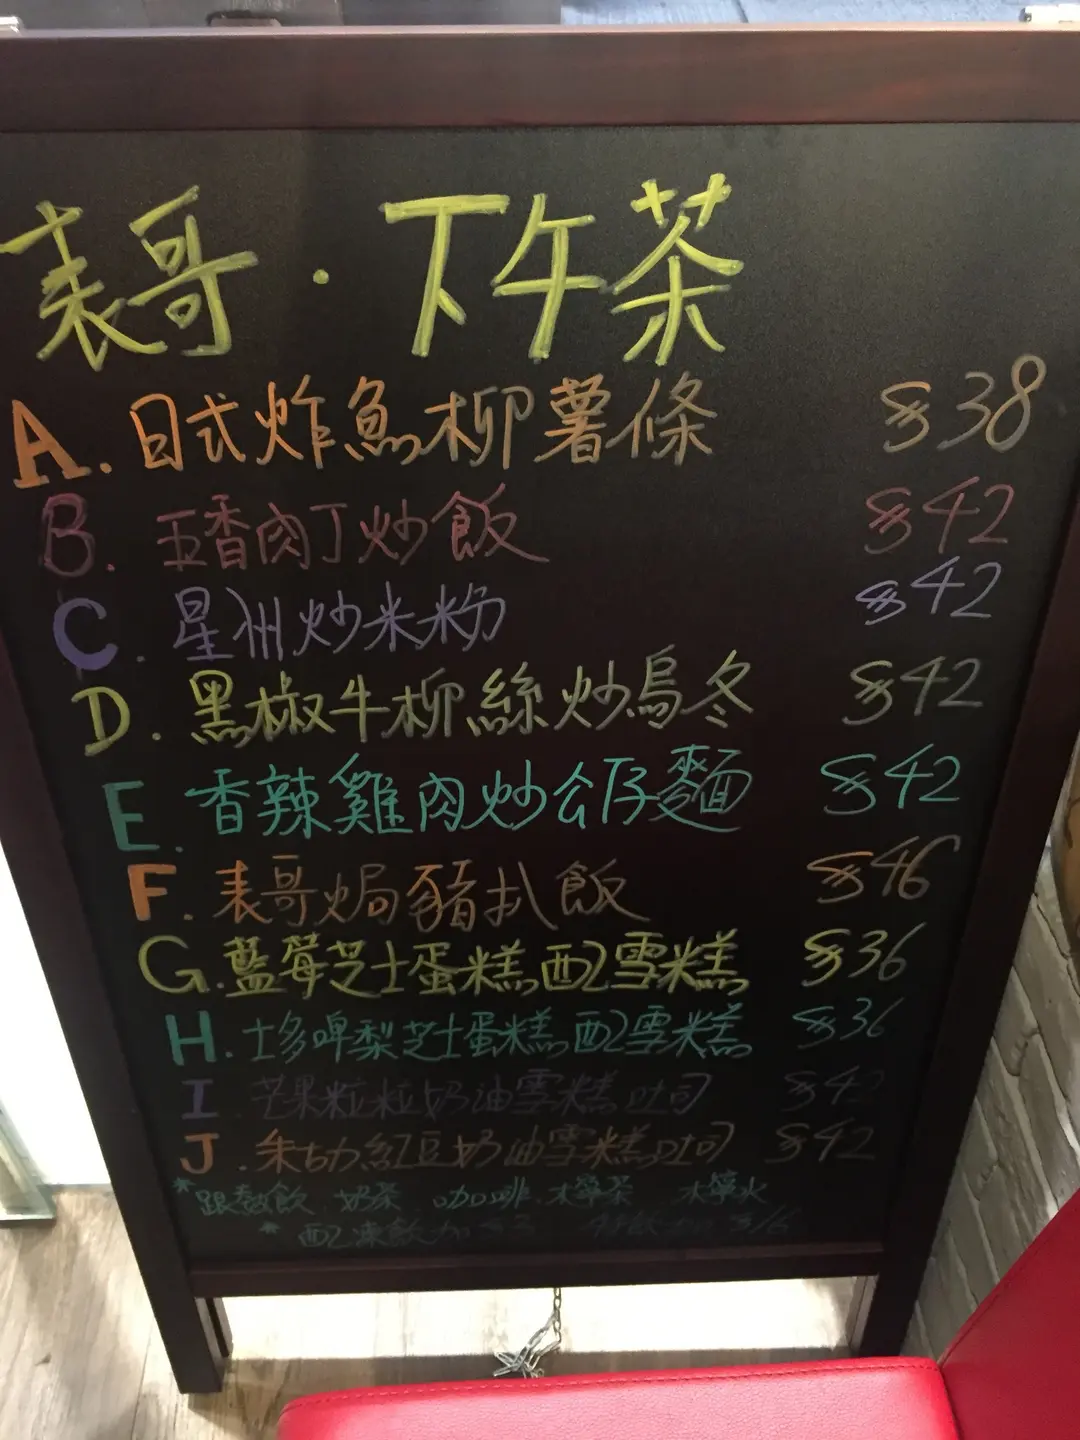 表哥·下午茶
A. 日式炸魚柳薯條 $38
B. 五香肉丁炒飯 $42
C. 星洲炒米粉 $42
D. 黑椒牛柳絲炒烏冬 $42
E. 香辣雞肉炒公仔麵 $42
F. 表哥焗豬扒飯 $46
G. 藍莓芝士蛋糕配雪糕 $36
H. 士多啤梨芝士蛋糕配雪糕 $36
I 芒果粒粒奶油雪糕吐司 $42
J. 朱古力紅豆奶油雪糕吐司 $42
*跟熱飲. 奶茶 咖啡. 檸茶 檸水
*配凍飲加$3